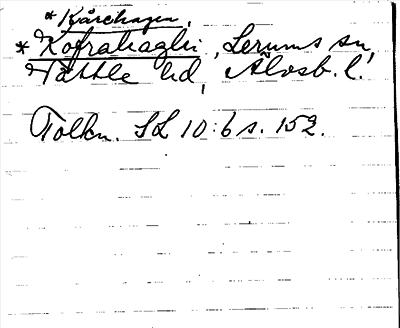 *Kårehagen.
*Kofrahaghi, Lerums sn,
Vättle hd, Älvsb. l.
Tolkn. SL 10:6 s. 152.